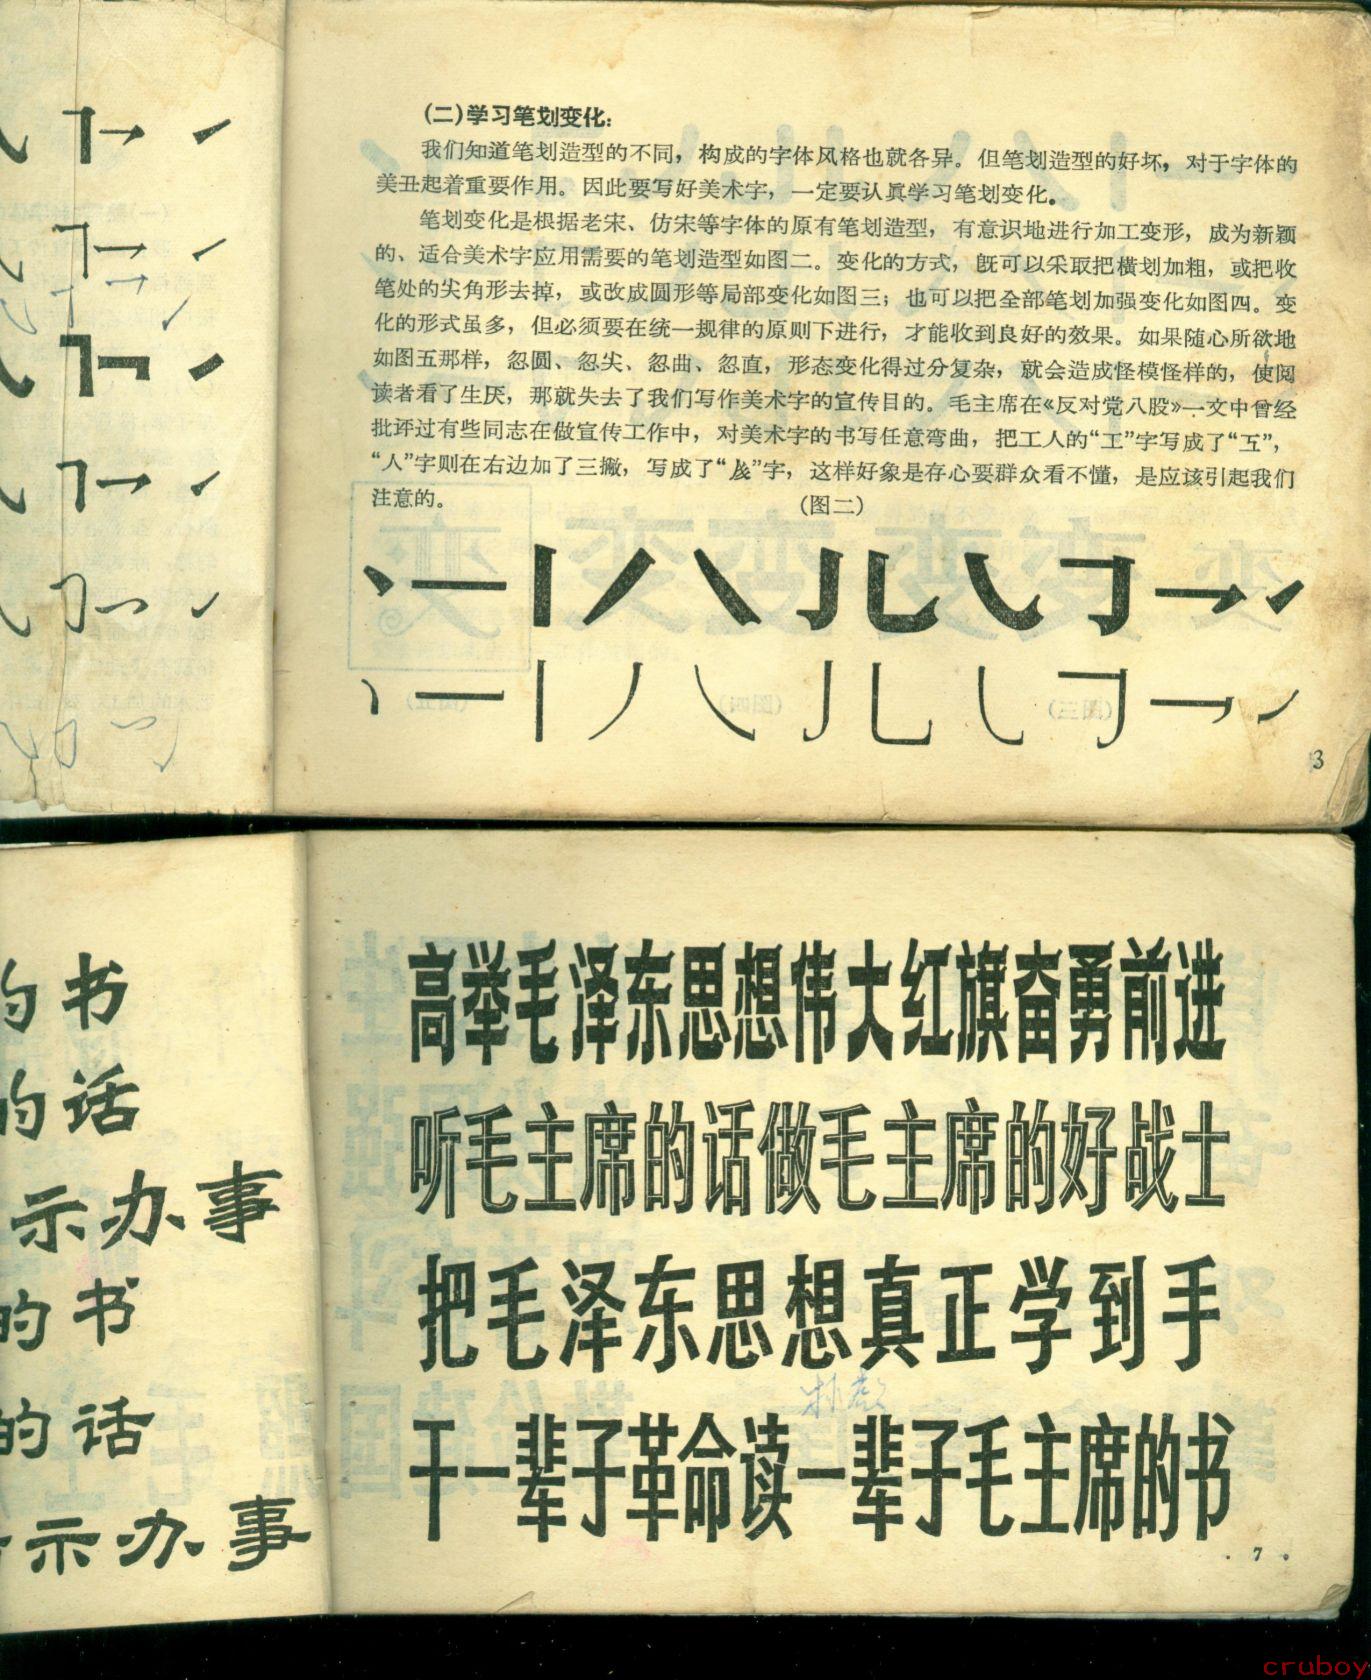 (二)学习笔划变化:
我们知道笔划造型的不同，构成的字体风格也就各异。但笔划造型的好坏，对于字体的
美丑起着重要作用。因此要写好美术字，一定要认真学习笔划变化。
笔划变化是根据老宋、仿宋等字体的原有笔划造型，有意识地进行加工变形，成为新颖
的、适合美术字应用需要的笔划造型如图二。变化的方式，既可以采取把横划加粗，或把收
笔处的尖角形去掉，或改成圆形等局部变化如图三；也可以把全部笔划加强变化如图四。变
化的形式虽多，但必须要在统一规律的原则下进行，才能收到良好的效果。如果随心所欲地
如图五那样，忽圆、忽尖、忽曲、忽直，形态变化得过分复杂，就会造成怪模怪样的，使阅
读者看了生厌，那就失去了我们写作美术字的宣传目的。毛主席在《反对党八股》一文中曾经
批评过有些同志在做宣传工作中，对美术字的书写任意弯曲，把工人的“工”字写成了“互”，
“人”字则在右边加了三撇，写成了“”字，这样好象是存心要群众看不懂，是应该引起我们
注意的。
(图二)
3
的书
的话
示办事
的书
的话
示办事
高举毛泽东思想伟大红旗奋勇前进
听毛主席的话做毛主席的好战士
把毛泽东思想真正学到手
干一辈子革命读一辈子毛主席的书
· 7 ·
cruboy